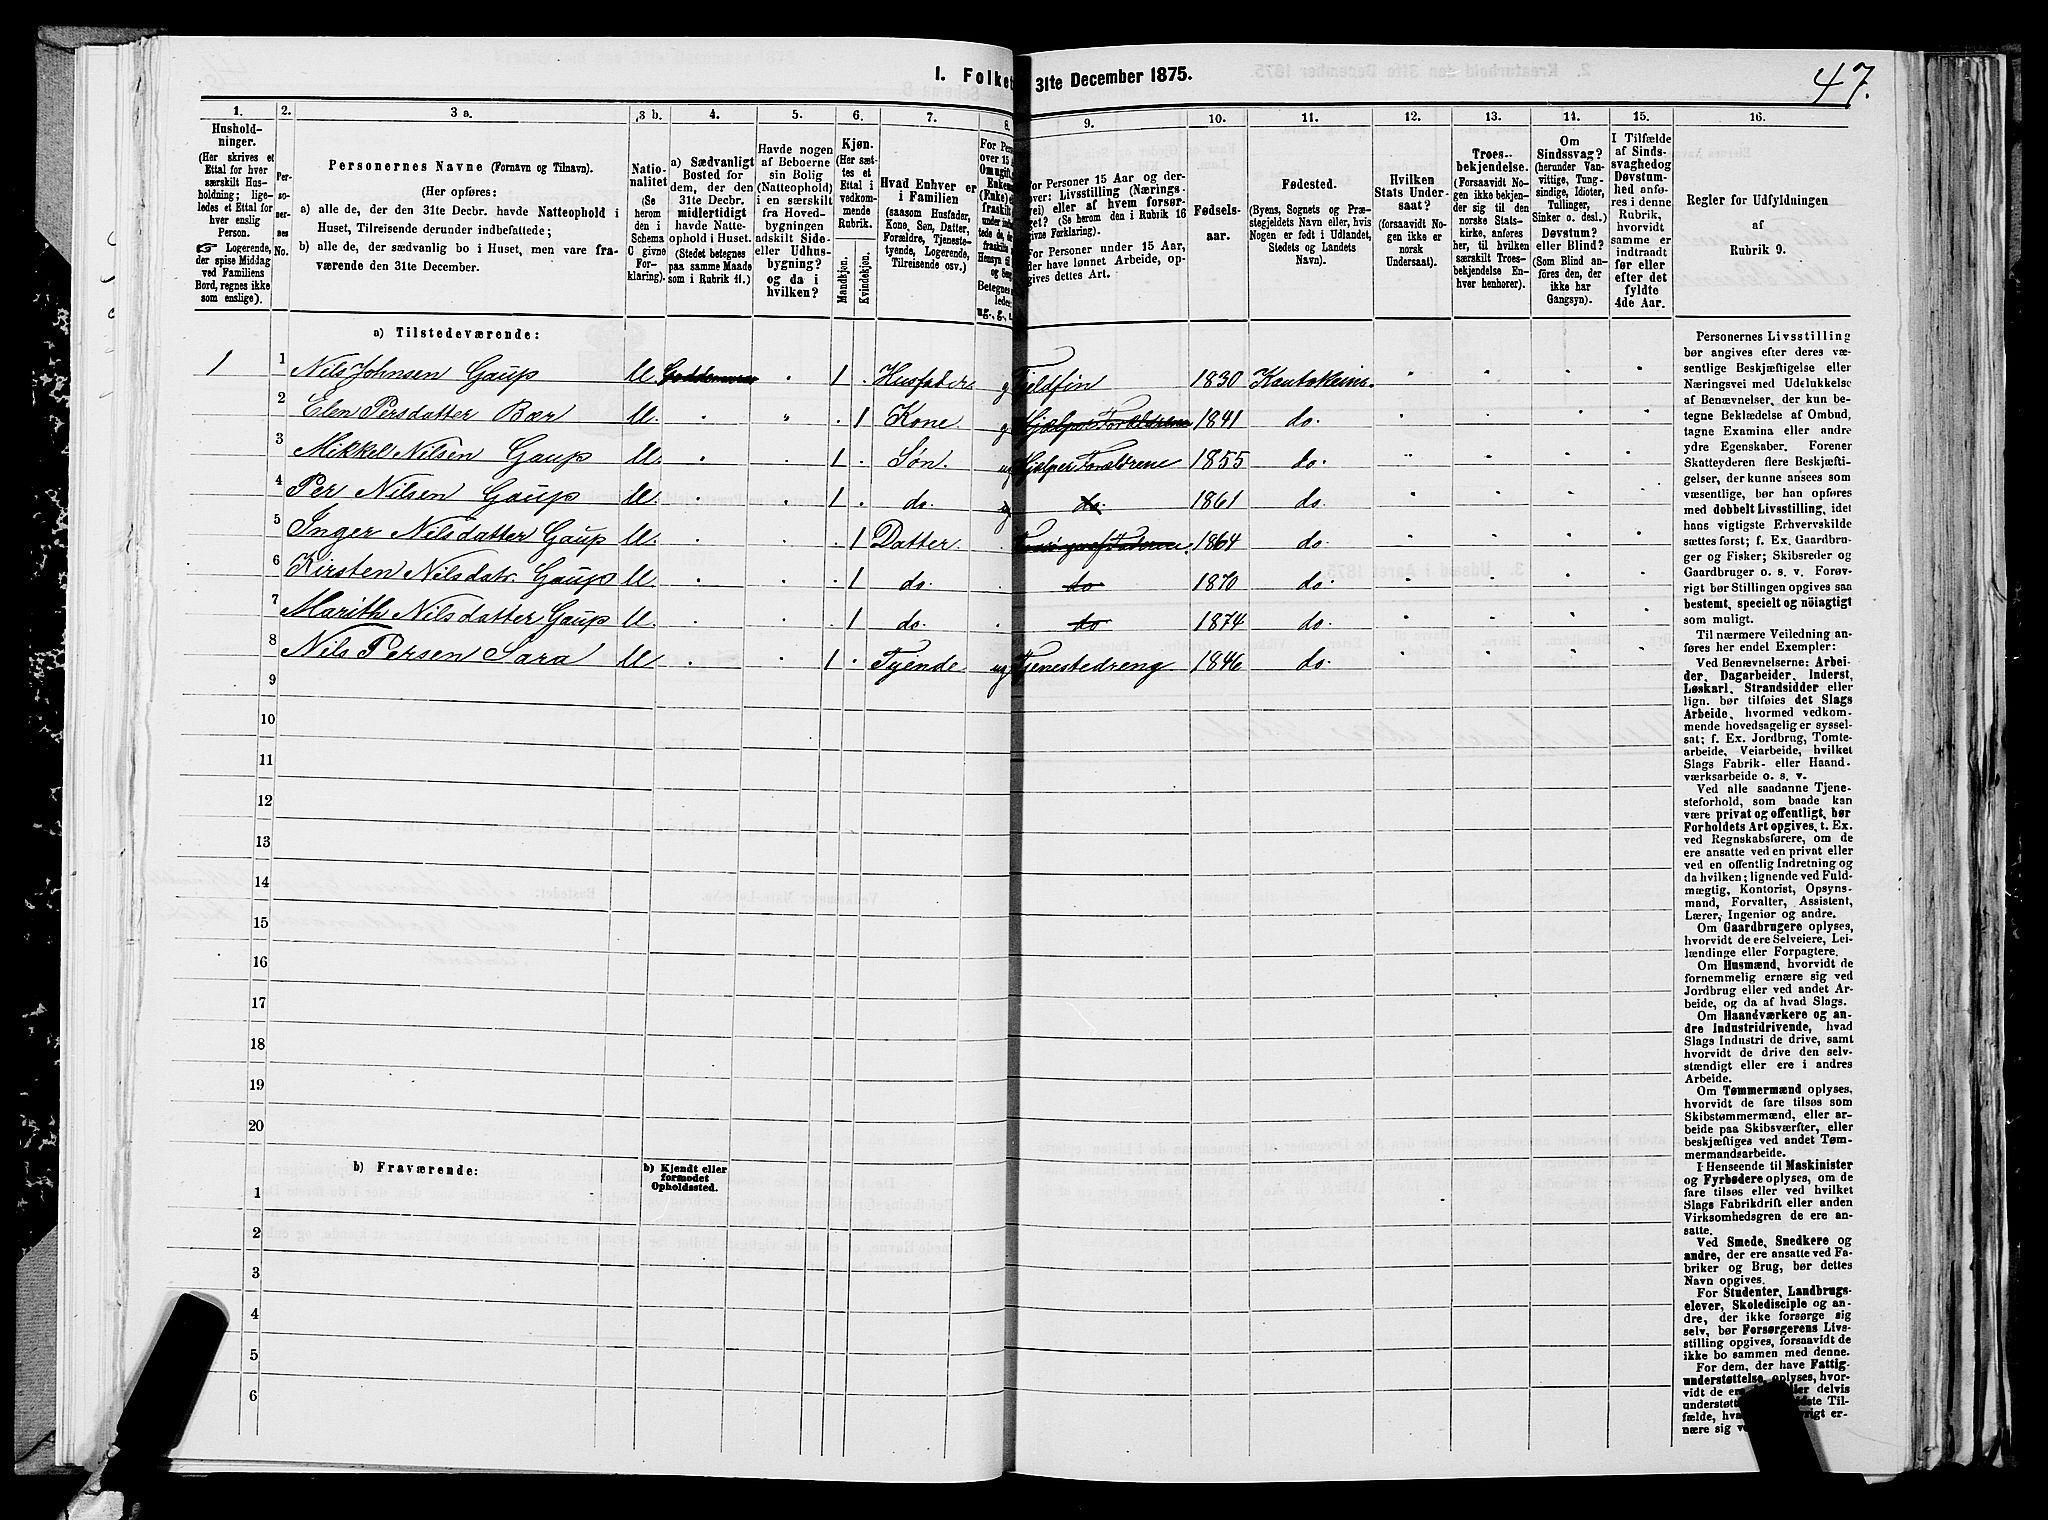 I. Folket 31te December 1875.
47.
1. 2. 3 a. 3 b. 4. 5. 6. 7. 8. 9. 10. 11. 12. 13. 14. 15. 16.
Hushold-
ninger.
(Her skrives et
Ettal for hver
særskilt Hus-
holdning; lige-
ledes et Ettal for
hver enslig
Person.
☞ Logerende,
der spise Middag
ved Familiens
Bord, regnes ikke
som enslige).
Per-
so-
ner-
nes
No.
Personernes Navne (Fornavn og Tilnavn).
(Her opføres:
a) alle de, der den 31te Decbr. havde Natteophold i
Huset, Tilreisende derunder indbefattede;
b) alle de, der sædvanlig bo i Huset, men vare fra-
værende den 31te December.
Natio-
nalitet
(Se
herom
den i
Schema
C givne
For-
klaring).
a) Sædvanligt
Bosted for
dem, der den
31te Decbr.
midlertidigt
havde Natte-
ophold i Huset.
(Stedet betegnes
paa samme Maade
som i Rubrik 11.)
Havde nogen
af Beboerne
sin Bolig
(Natteophold)
i en særskilt
fra Hoved-
bygningen
adskilt Side-
eller Udhus-
bygning?
og da i
hvilken?
Kjøn.
(Her sæt-
tes et
Ettal i
vedkom-
mende
Rubrik.
Mandkjøn.
Kvindekjøn.
Hvad Enhver er
i Familien
(saasom Husfader,
Kone, Søn, Datter,
Forældre, Tjeneste-
tyende, Logerende,
Tilreisende osv.)
For Personer 15 Aar og der-
over: Livsstilling (Nærings-
vei) eller af hvem forsør-
get? (Se herom den i Rubrik 16
givne Forklaring).
For Personer under 15 Aar,
der have lønnet Arbeide, op-
gives dettes Art.
Fødsels-
aar.
Fødested.
(Byens, Sognets og Præ-
stegjeldets Navn eller, hvis
Nogen er født i Udlandet,
Stedets og Landets
Navn).
Hvilken
Stats Under-
saat?
(forsaavidt No-
gen ikke er
norsk
Undersaat).
Troes-
bekjendelse.
(Forsaavidt No-
gen ikke bekjen-
der sig til den
norske Stats-
kirke, anføres
her, til hvilken
særskilt Troes-
bekjendelse En-
hver henhører).
Om
Sindssvag?
(herunder Van-
vittige, Tung-
sindige, Idioter,
Tullinger,
Sinker o. desl.)
Døvstum?
eller Blind?
(Som Blind an-
føres den, der
ikke har
Gangsyn).
I Tilfælde
af Sinds-
svaghed og
Døvstum-
hed anfø-
res i denne
Rubrik,
hvorvidt
samme er
indtraadt
før eller
efter det
fyldte
4de Aar.
Regler for Udfyldningen
af
Rubrik 9.
a) Tilstedeværende:
1 1 Nils Johnsen Gaup U. 1 . Husfader g Fjeldfin 1830 Kautokeino
2 Elen Persdatter Bær U. . 1 Kone. g Hjælper Forældrene 1841 do.
3 Mikkel Nilsen Gaup U. 1 . Søn. ug Hjælper Forældrene 1855 do.
4 Per Nilsen Gaup U. 1 . do. ug do. 1861 do.
5 Inger Nilsdatter Gaup U. . 1 Datter. 1864 do.
6 Kirsten Nilsdatr. Gaup U. . 1 do. do 1870 do.
7 Marith Nilsdatter Gaup U. . 1 do. do 1874 do.
8 Nils Persen Sara U. 1 . Tyende ug Tjenestedreng 1846 do.
9
10
11
12
13
14
15
16
17
18
19
20
b) Fraværende:
b) Kjendt eller
formodet
Opholdssted.
1
2
3
4
5
6
Personernes Livsstilling
bør angives efter deres væ-
sentlige Beskjæftigelse eller
Næringsvei med Udelukkelse
af Benævnelser, der kun be-
tegne Beklædelse af Ombud,
tagne Examina eller andre
ydre Egenskaber. Forener
Skatteyderen flere Beskjæfti-
gelser, der kunne ansees som
væsentlige, bør han opføres
med dobbelt Livsstilling, idet
hans vigtigste Erhvervskilde
sættes først; f. Ex. Gaardbru-
ger og Fisker; Skibsreder og
Gaardbruger o. s. v. Forøv-
rigt bør Stillingen opgives saa
bestemt, specielt og nöiagtigt
som muligt.
Til nærmere Veiledning an-
føres her endel Exempler:
Ved Benævnelserne: Arbei-
der, Dagarbeider, Inderst,
Løskarl, Strandsidder eller
lign. bør tilføies det Slags
Arbeide, hvormed vedkom-
mende hovedsagelig er syssel-
sat; f. Ex. Jordbrug, Tomte-
arbeide, Veiarbeide, hvilket
Slags Fabrik- eller Haand-
værksarbeide o. s. v.
Ved alle saadanne Tjene-
steforhold, som baade kan
være privat og offentligt, bør
Forholdets Art opgives, t. Ex.
ved Regnskabsførere, om de
ere ansatte ved en privat eller
ved en offentlig Indretning og
da hvilken; lignende ved Fuld-
mægtig, Kontorist, Opsyns-
mand, Forvalter, Assistent,
Lærer, Ingeniør og andre.
Om Gaardbrugere oplyses,
hvorvidt de ere Selveiere, Lei-
lændinge eller Forpagtere.
Om Husmænd, hvorvidt de
fornemmelig ernære sig ved
Jordbrug eller ved andet Ar-
beide, og da af hvad Slags.
Om Haandværkere og an-
dre Industridrivende, hvad
Slags Industri de drive, samt
hvorvidt de drive den selv-
stændigt eller ere i andres
Arbeide.
Om Tømmermænd oplyses,
hvorvidt de fare tilsøs som
Skibstømmermænd, eller ar-
beide paa Skibsværfter, eller
beskjæftiges ved andet Tøm-
mermandsarbeide.
I Henseende til Maskinister
og Fyrbødere oplyses, om de
fare tilsøs eller ved hvilket
Slags Fabrikdrift eller anden
Virksomhedsgren de ere an-
satte.
Ved Smede, Snedkere og
andre, der ere ansatte ved Fa-
briker og Brug, bør dettes
Navn opgives.
For Studenter, Landbrugs-
elever, Skoledisciple og an-
dre, der ikke forsørge sig
selv, bør Forsørgerens Livs-
stilling opgives, forsaavidt de
ikke bo sammen med denne.
For dem, der have Fattig-
understøttelse, oplyses, hvor-
vidt de ere delvis